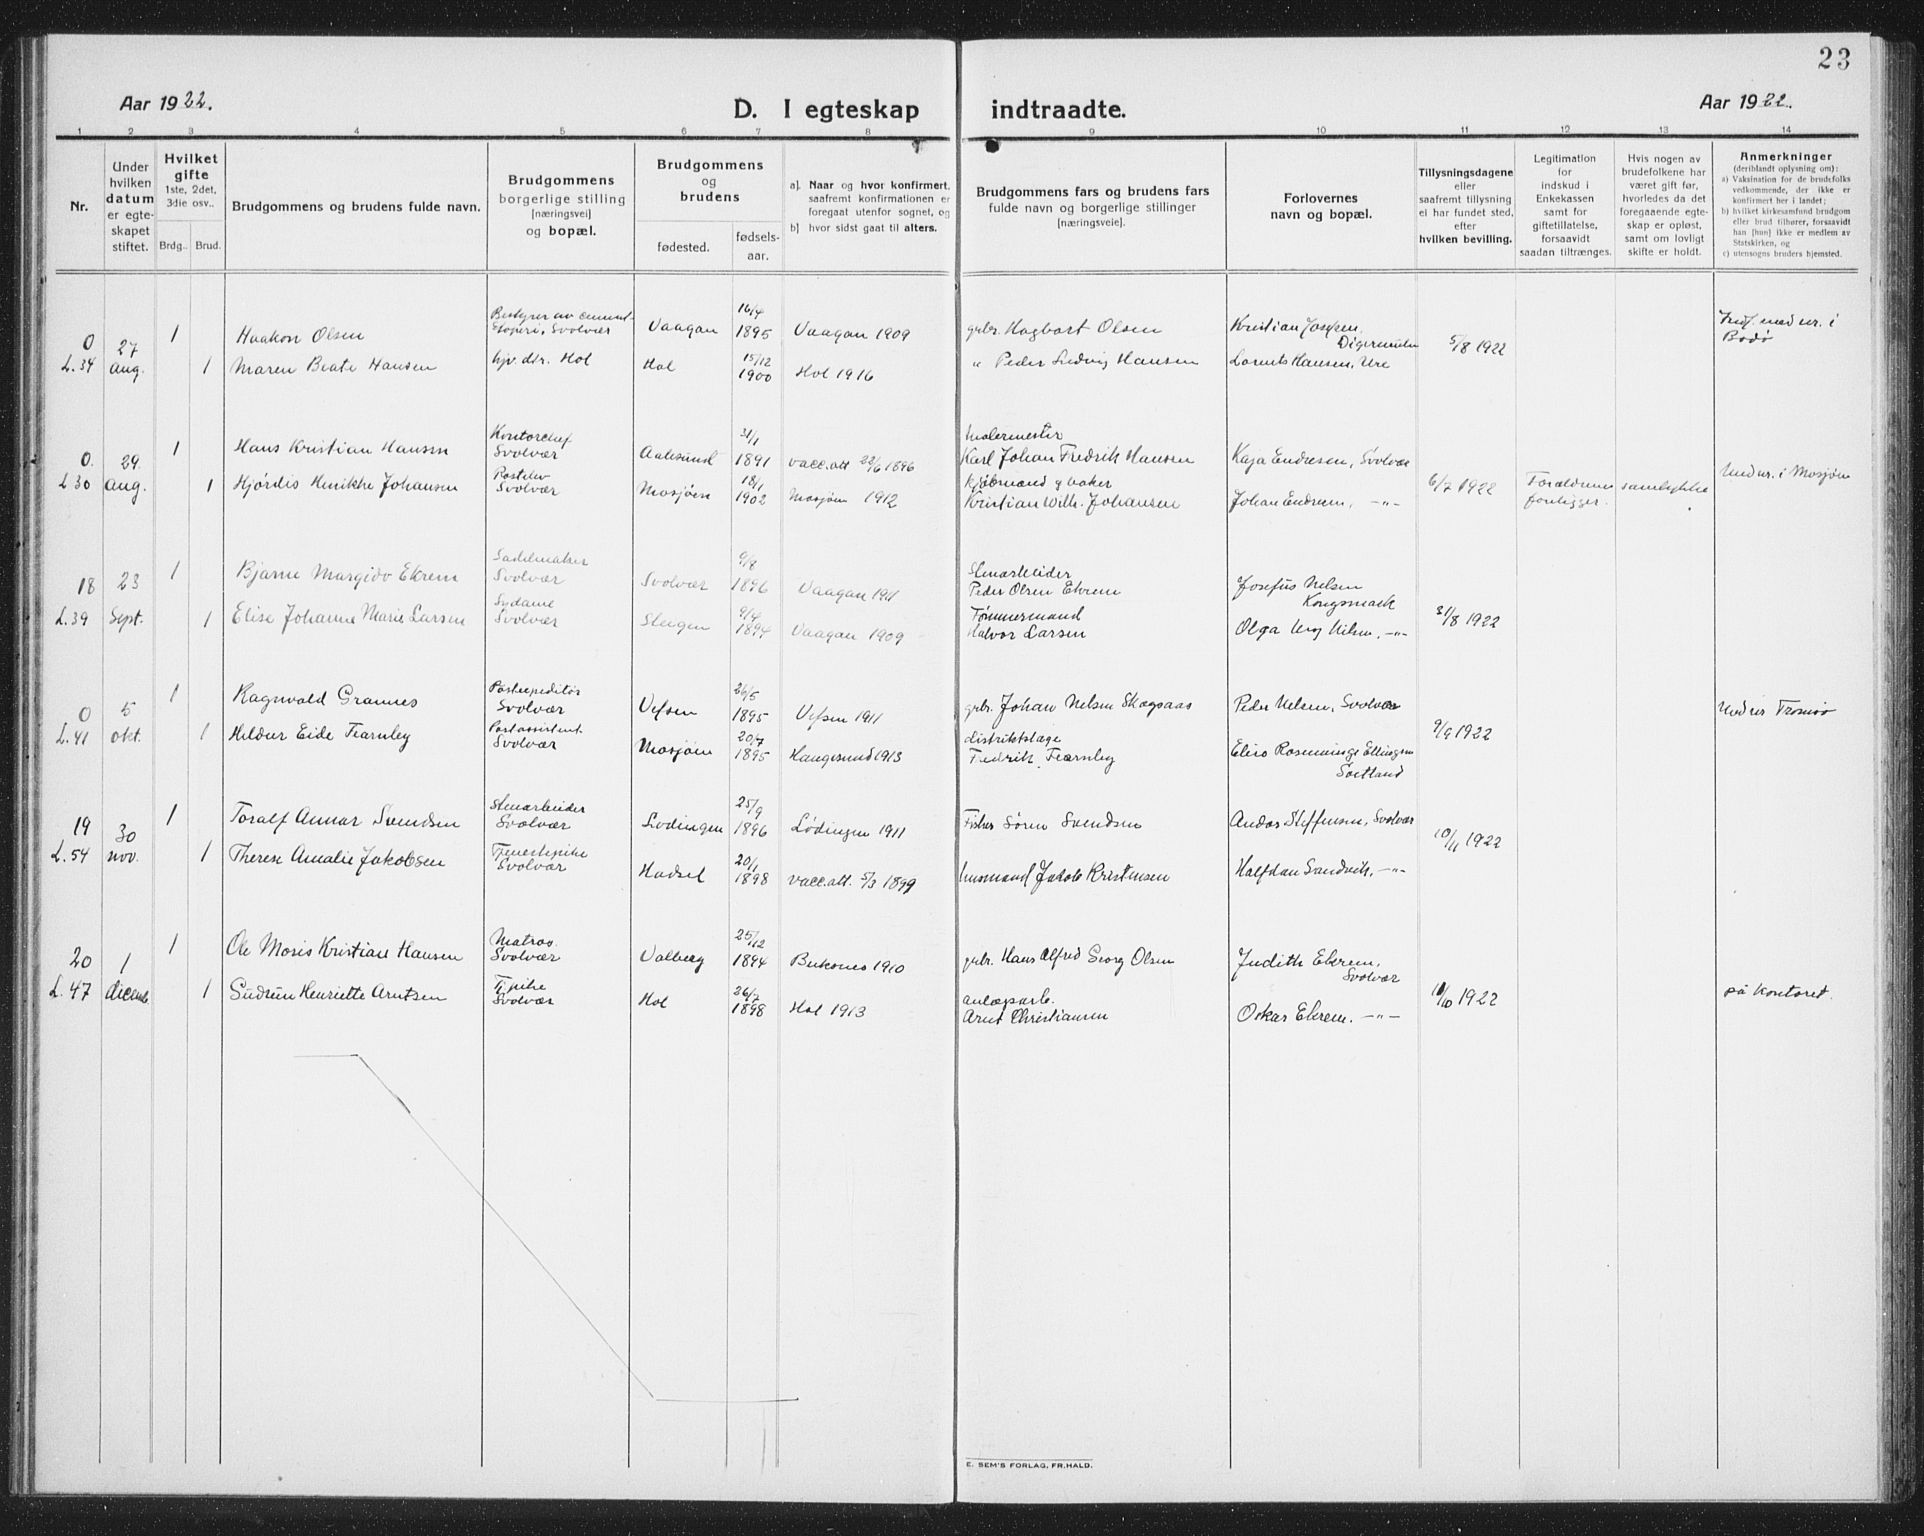 23
Aar 1922.
D. I egteskap indtraadte.
Aar 1922.
1 2 3 4 5 6 7 8 9 10 11 12 13 14
Nr.
Under
hvilken
datum
er egte-
skapet
stiftet.
Hvilket
gifte
1ste, 2det,
3die osv..
Brdg.. Brud.
Brudgommens og brudens fulde navn.
Brudgommens
borgerlige stilling
[næringsvei]
og bopæl.
Brudgommens
og
brudens
fødested.
fødsels-
aar.
a]. Naar og hvor konfirmert,
saafremt konfirmationen er
foregaat utenfor sognet, og
b] hvor sidst gaat til alters.
Brudgommens fars og brudens fars
fulde navn og borgerlige stillinger
[næringsveie].
Forlovernes
navn og bopæl.
Tillysningsdagene
eller
saafremt tillysning
ei har fundet sted,
efter
hvilken bevilling.
Legitimation
for
indskud i
Enkekassen
samt for
giftetillatelse,
forsaavidt
saadan tiltrænges.
Hvis nogen av
brudefolkene har
været gift før,
hvorledes da det
foregaaende egte-
skap er opløst,
samt om lovligt
skifte er holdt.
Anmerkninger
(deriblandt oplysning om):
a) Vaksination for de brudefolks
vedkommende, der ikke er
konfirmert her i landet;
b) hvilket kirkesamfund brudgom
eller brud tilhører, forsaavidt
han [hun] ikke er medlem av
Statskirken, og
c) utensogns bruders hjemsted.
0 27 1 Haakon Olsen Bestyrer av cement-
støperi, Svolvær Vaagan 16/4 1895 Vaagan 1909 gbr. Hagbart Olsen Kristian Josefsen, Digermulen 5/8 1922 i Bodø
L. 34 aug. 1 Maren Beate Hansen hjv. dtr. Hol Hol 15/12 1900 Hol 1916 " Peder Ludvig Hansen Lorents Hansen, Ure
0. 29. 1 Hans Kristian Hansen Kontorchef
Svolvær Aalesund 31/1 1891 vacc. att. 22/6 1896 Malermester
Karl Johan Fredrik Hansen Kaja Endresen, Svolvær
L 30 aug. 1 Hjördis Henrikke Johansen
Svolvær Mosjøen 18/1 1902 Mosjøen 1912 Kjøbmand og baker
Kristian Wilh. Johansen Johan Endresen, -"- 6/7 1922 Forældrenes samtykke
foreligger. i Mosjøen
18 23 1 Bjarne Margido Ekrem Sadelmaker
Svolvær Svolvær 9/8 1896 Vaagan 1911 Stenarbeider
Peder Olsen Ekrem Josefus Nelsen
Kongsmark
L. 39 Sept. 1 Elise Johanne Marie Larsen Sydame
Svolvær Steigen 9/4 1894 Vaagan 1909 Tømmermand
Halvor Larsen Olga Nilsen, -"- 31/8 1922
0 5 1 Ragnvald Grannes Postexpeditør
Svolvær Vefsen 26/5 1895 Vefsen 1911 gbr. Johan Nelsen Skogsaas Peder Nelsen, Svolvær Tromsø
L. 41 okt. 1 Hildur Eide Fearnley Postassistent
Svolvær Mosjøen 20/7 1895 Haugesund 1913 distriktslæge
Fredrik Fearnley Ellingsen
Sortland 9/9 1922
19 30 1 Toralf Annar Svendsen Stenarbeider
Svolvær Lødingen 25/9 1896 Lødingen 1911 Fisker Søren Svendsen Andor Steffensen, Svolvær
L. 54 nov. 1 Therese Amalie Jakobsen Tjenestepike
Svolvær Hadsel 20/1 1898 vacc. att. 5/3 1899 husmand Jakob Kristensen Halfdan Sandvik, -"- 10/11 1922
20 1 1 Ole Moris Kristian Hansen Matros.
Svolvær Valberg 25/12 1894 Buksnes 1910 gbr. Hans Alfred Georg Olsen Judith Ekrem,
Svolvær
L. 47 decemb. 1 Gudrun Henriette Arntsen Tj.pike
Svolvær Hol 26/7 1898 Hol 1913 anlægsarb.
Arnt Christiansen Oskar Ekrem. -"- 10/10 1922 på kontoret.
E. SEM'S FORLAG, FR.HALD.